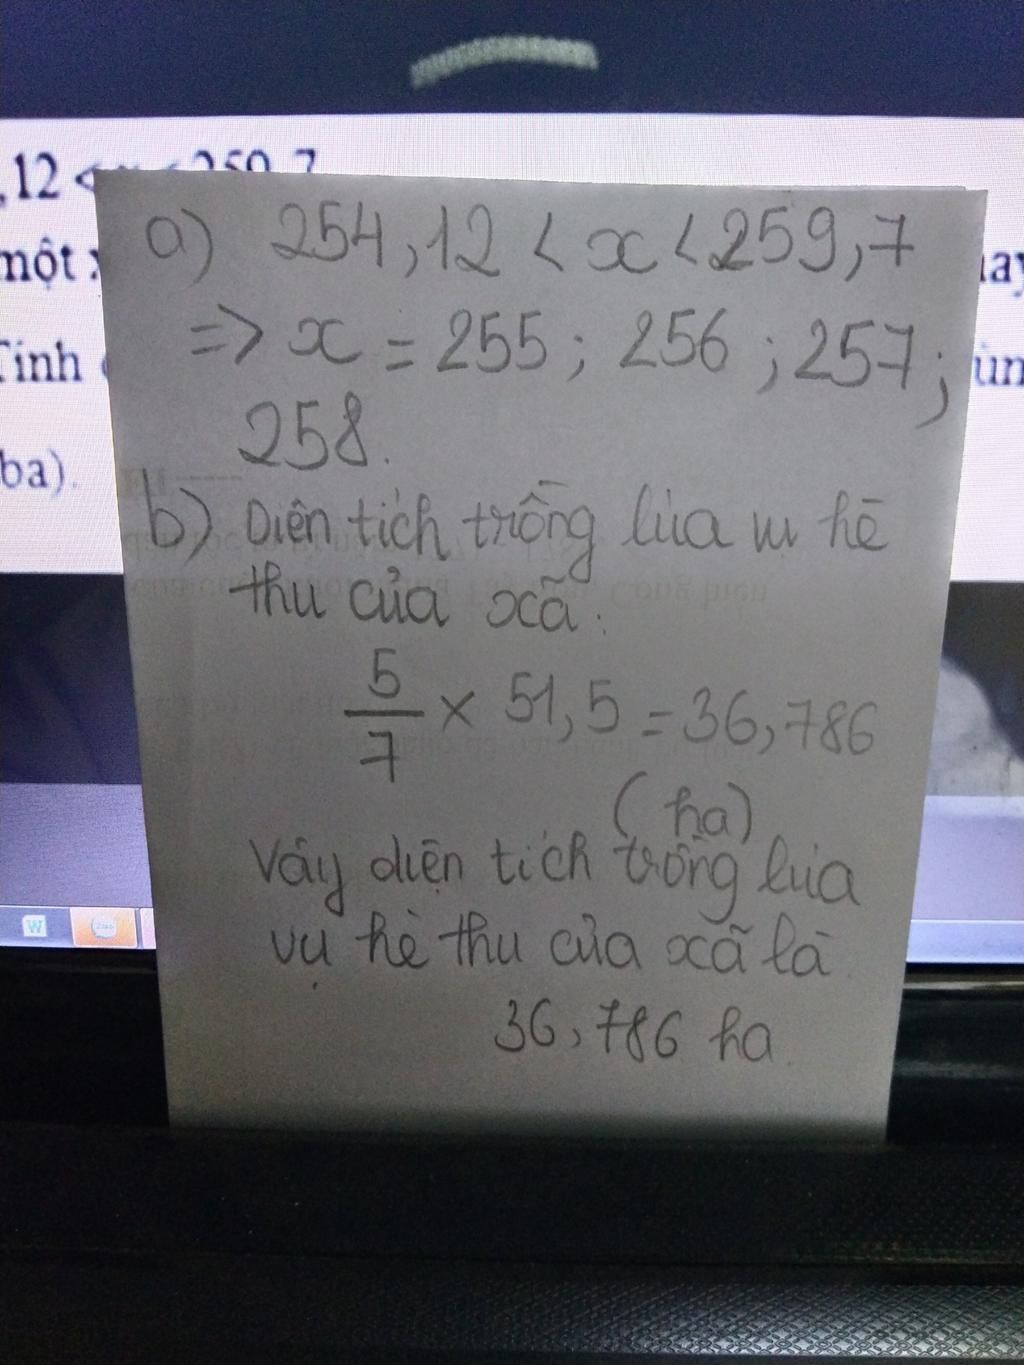 ,12 < x < 259,7
một
Tính
ba).
a) 254,12 < x < 259,7
=> x = 255 ; 256 ; 257 ;
258.
b) Diện tích trồng lúa vụ hè
thu của xã :
5/7 × 51,5 = 36,786
(ha)
Vậy diện tích trồng lúa
vụ hè thu của xã là
36,786 ha
W
Zalo